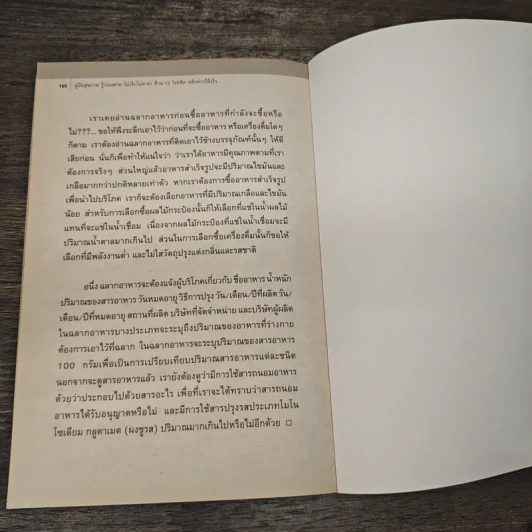 168 คู่มือสุขภาพ รู้ก่อนตาย ไม่เจ็บไม่ตาย ด้วย 10 โรคฮิต
เราเคยอ่านฉลากอาหารก่อนซื้ออาหารที่กำลังจะซื้อหรือ
ไม่???... ขอให้พึงระลึกเอาไว้ว่าก่อนที่จะซื้ออาหาร หรือเครื่องดื่มใดๆ
ก็ตาม เราต้องอ่านฉลากอาหารที่ติดเอาไว้ข้างบรรจุภัณฑ์นั้นๆ ให้ดี
เสียก่อน นั่นก็เพื่อทำให้แน่ใจว่า ว่าเราได้อาหารมีคุณภาพตามที่เรา
ต้องการจริงๆ ส่วนใหญ่แล้วอาหารสำเร็จรูปจะมีปริมาณไขมันและ
เกลือมากกว่าปกติหลายเท่าตัว หากเราต้องการซื้ออาหารสำเร็จรูป
เพื่อนำไปบริโภค เราก็จะต้องเลือกอาหารที่มีปริมาณเกลือและไขมัน
น้อย สำหรับการเลือกซื้อผลไม้กระป๋องนั้นก็ให้เลือกที่แช่ในน้ำผลไม้
แทนที่จะแช่ในน้ำเชื่อม เนื่องจากผลไม้กระป๋องที่แช่ในน้ำเชื่อมจะมี
ปริมาณน้ำตาลมากเกินไป ส่วนในการเลือกซื้อเครื่องดื่มนั้นก็ขอให้
เลือกที่มีพลังงานต่ำ และไม่ใส่วัตถุปรุงแต่งกลิ่นและรสชาติ
อนึ่ง ฉลากอาหารจะต้องแจ้งผู้บริโภคเกี่ยวกับ ชื่ออาหาร น้ำหนัก
ปริมาณของสารอาหาร วันหมดอายุ วิธีการปรุง วัน/เดือน/ปีที่ผลิต วัน/
เดือน/ปีที่หมดอายุ สถานที่ผลิต บริษัทที่จัดจำหน่าย และบริษัทผู้ผลิต
ในฉลากอาหารบางประเภทจะระบุถึงปริมาณของอาหารที่ร่างกาย
ต้องการเอาไว้ที่ฉลาก ในฉลากอาหารจะระบุปริมาณของสารอาหาร
100 กรัมเพื่อเป็นการเปรียบเทียบปริมาณสารอาหารแต่ละชนิด
นอกจากจะดูสารอาหารแล้ว เรายังต้องดูว่ามีการใช้สารถนอมอาหาร
ด้วยว่าประกอบไปด้วยสารอะไร เพื่อที่เราจะได้ทราบว่าสารถนอม
อาหารได้รับอนุญาตหรือไม่ และมีการใช้สารปรุงรสประเภทโมโน
โซเดียม กลูตาเมต (ผงชูรส) ปริมาณมากเกินไปหรือไม่อีกด้วย □